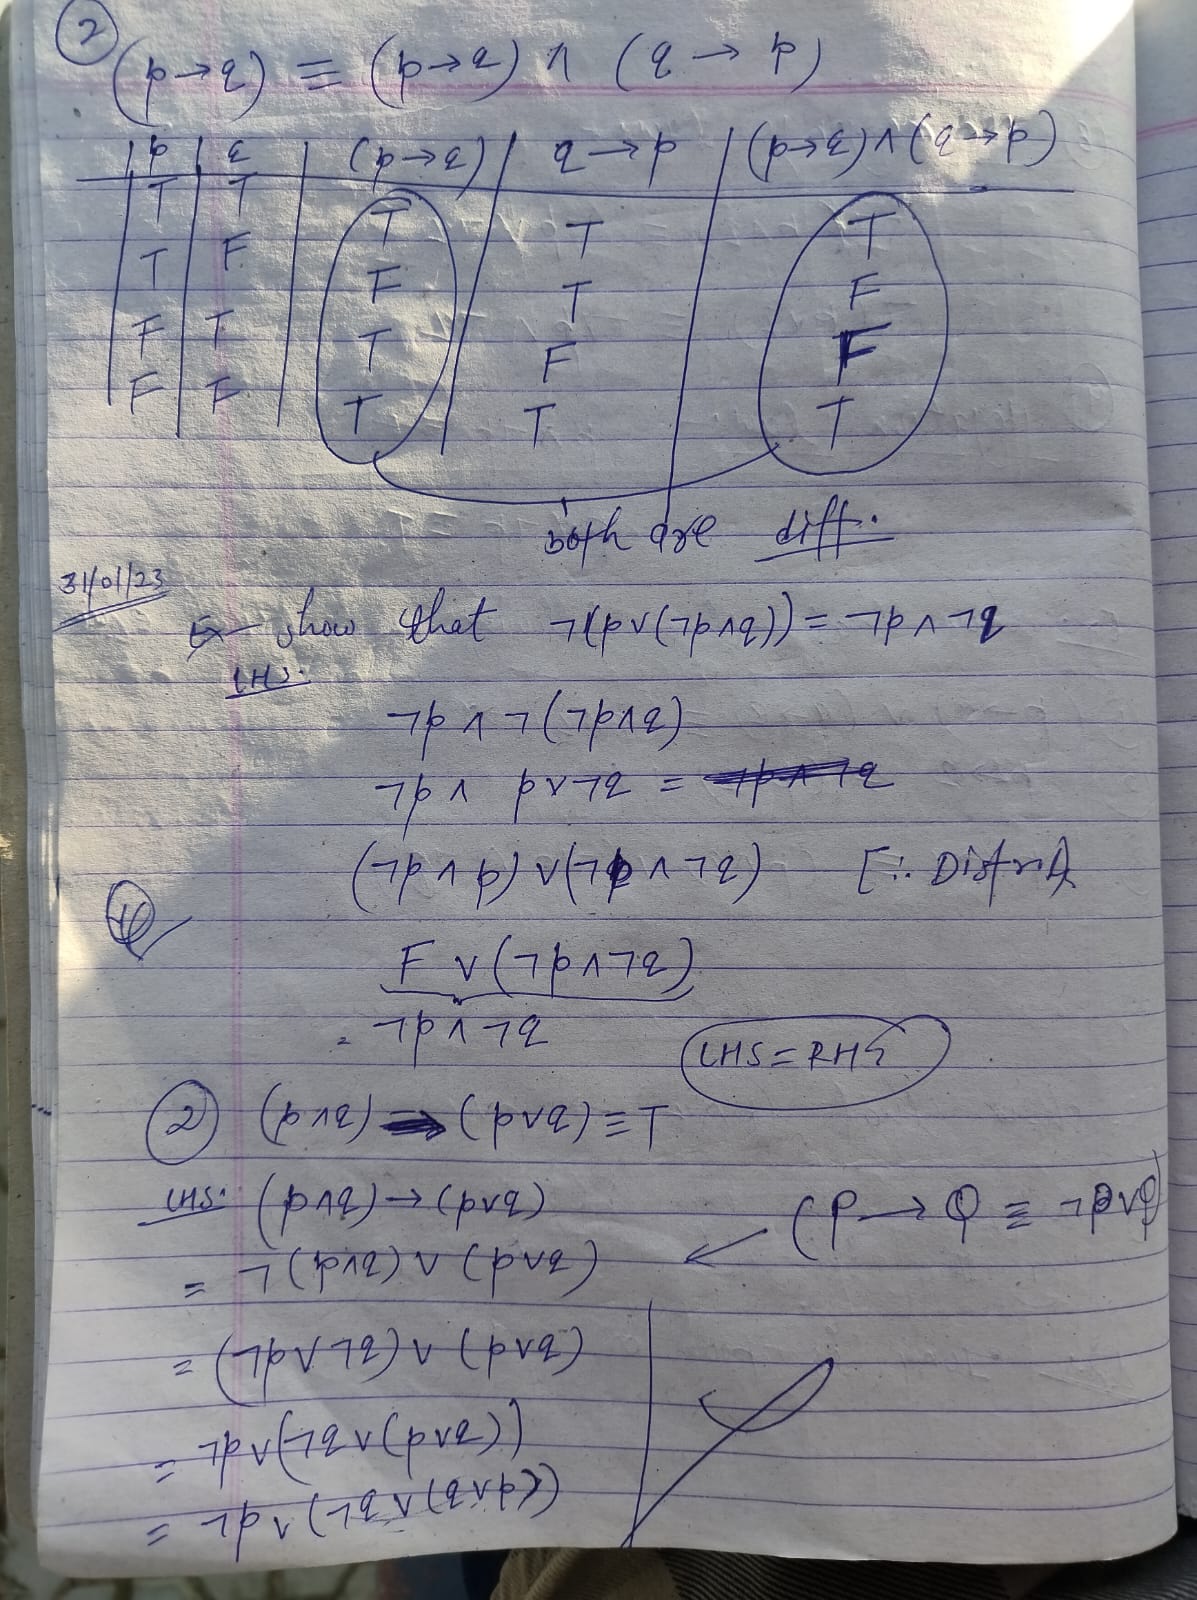 2
(p→q) ≡ (p→q) ∧ (q → p)
p q (p→q) q → p (p→q)∧(q→p)
T T T T T
T F F T F
F T T F F
F F T T T
both are diff.
31/01/23
Ex show that ¬(p∨(¬p∧q)) = ¬p∧¬q
LHS:
¬p ∧ ¬(¬p∧q)
¬p ∧ p∨¬q = ¬p∧¬q
(¬p∧p)∨(¬p∧¬q) [∵ Distri.]
F ∨ (¬p∧¬q)
= ¬p∧¬q
LHS=RHS
2 (p∧q) → (p∨q) ≡ T
LHS: (p∧q) → (p∨q)
(P → Q ≡ ¬P∨Q)
= ¬(p∧q) ∨ (p∨q)
= (¬p∨¬q) ∨ (p∨q)
= ¬p∨(¬q∨(p∨q))
= ¬p∨(¬q∨(q∨p))